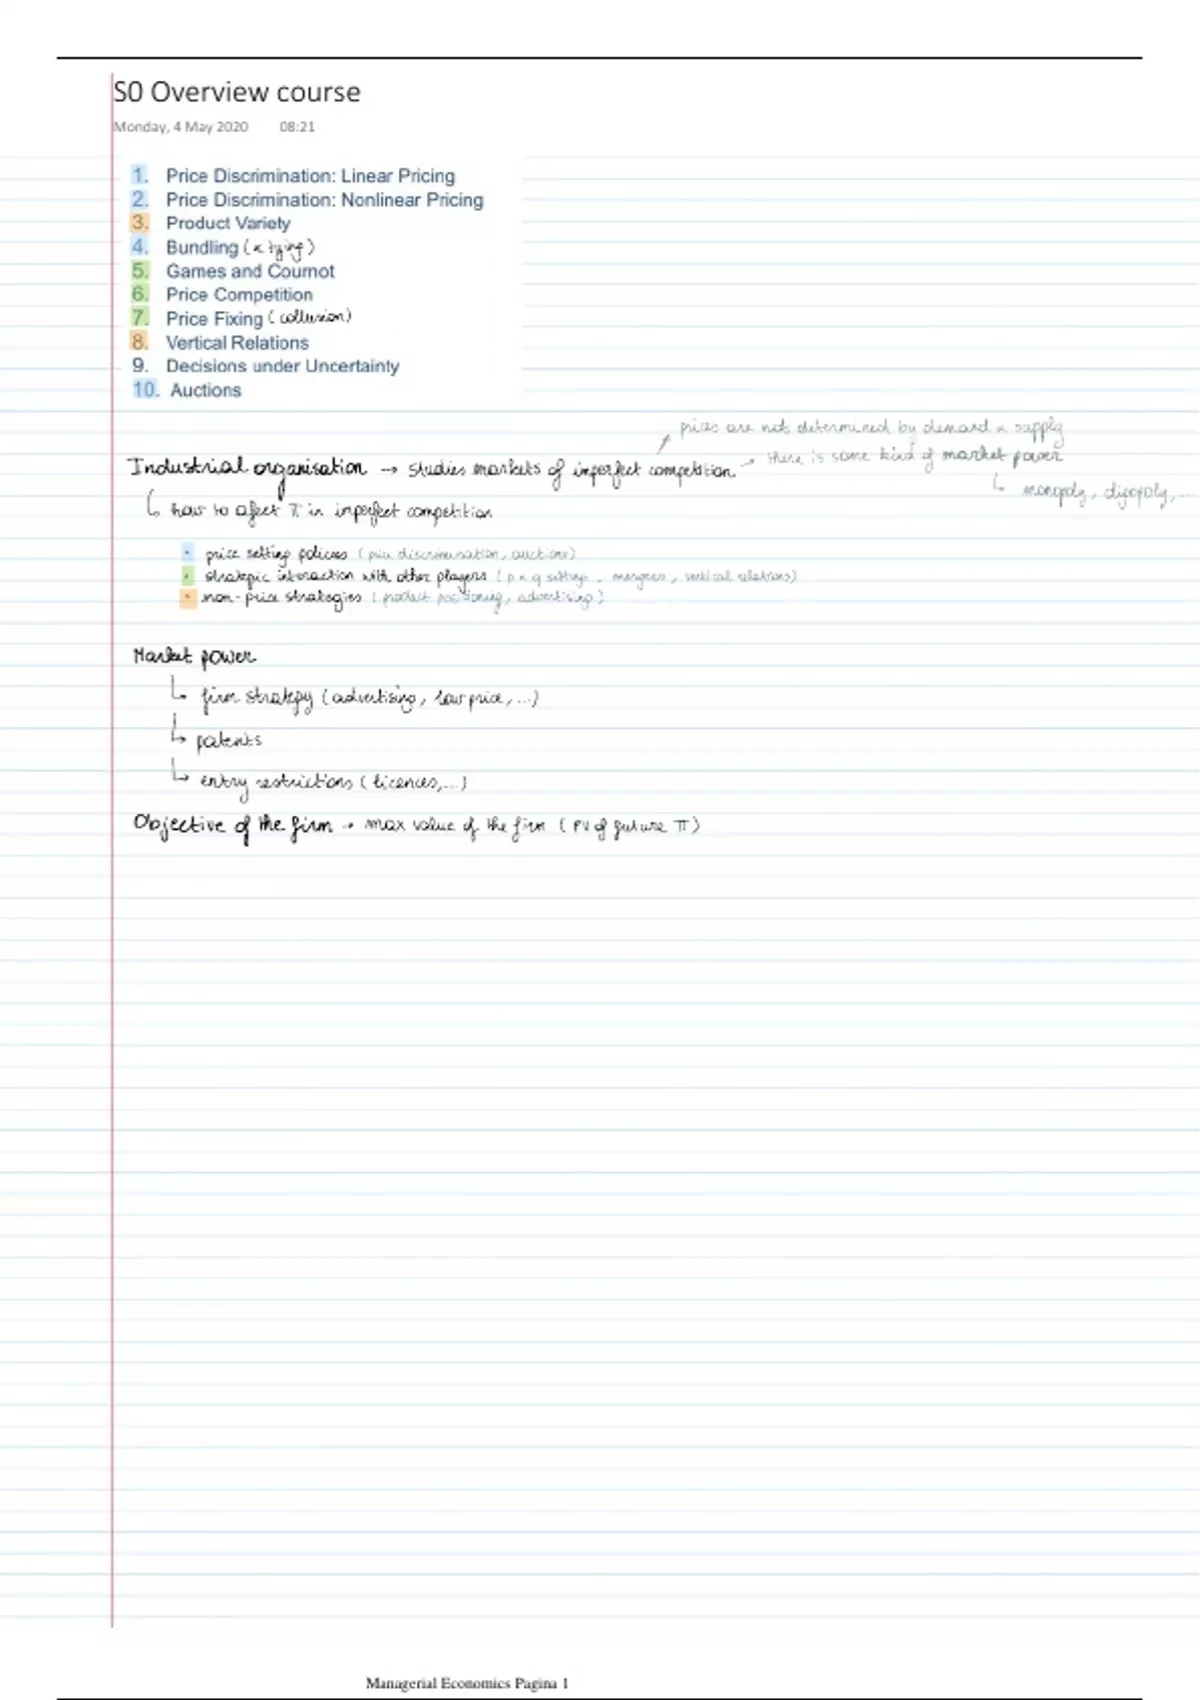 S0 Overview course
Monday, 4 May 2020 08:21
1. Price Discrimination: Linear Pricing
2. Price Discrimination: Nonlinear Pricing
3. Product Variety
4. Bundling (& tying)
5. Games and Cournot
6. Price Competition
7. Price Fixing (collusion)
8. Vertical Relations
9. Decisions under Uncertainty
10. Auctions
prices are not determined by demand & supply
Industrial organisation → studies markets of imperfect competition → there is some kind of market power
↳ monopoly, oligopoly, ...
↳ how to afect π in imperfect competition
• price setting policies (price discrimination, auctions)
• strategic interaction with other players (p & q setting, mergers, vertical relations)
• non-price strategies (product positioning, advertising)
Market power
↳ firm strategy (advertising, low price, ...)
↳ patents
↳ entry restrictions (licences, ...)
Objective of the firm → max value of the firm (PV of future π)
Managerial Economics Pagina 1